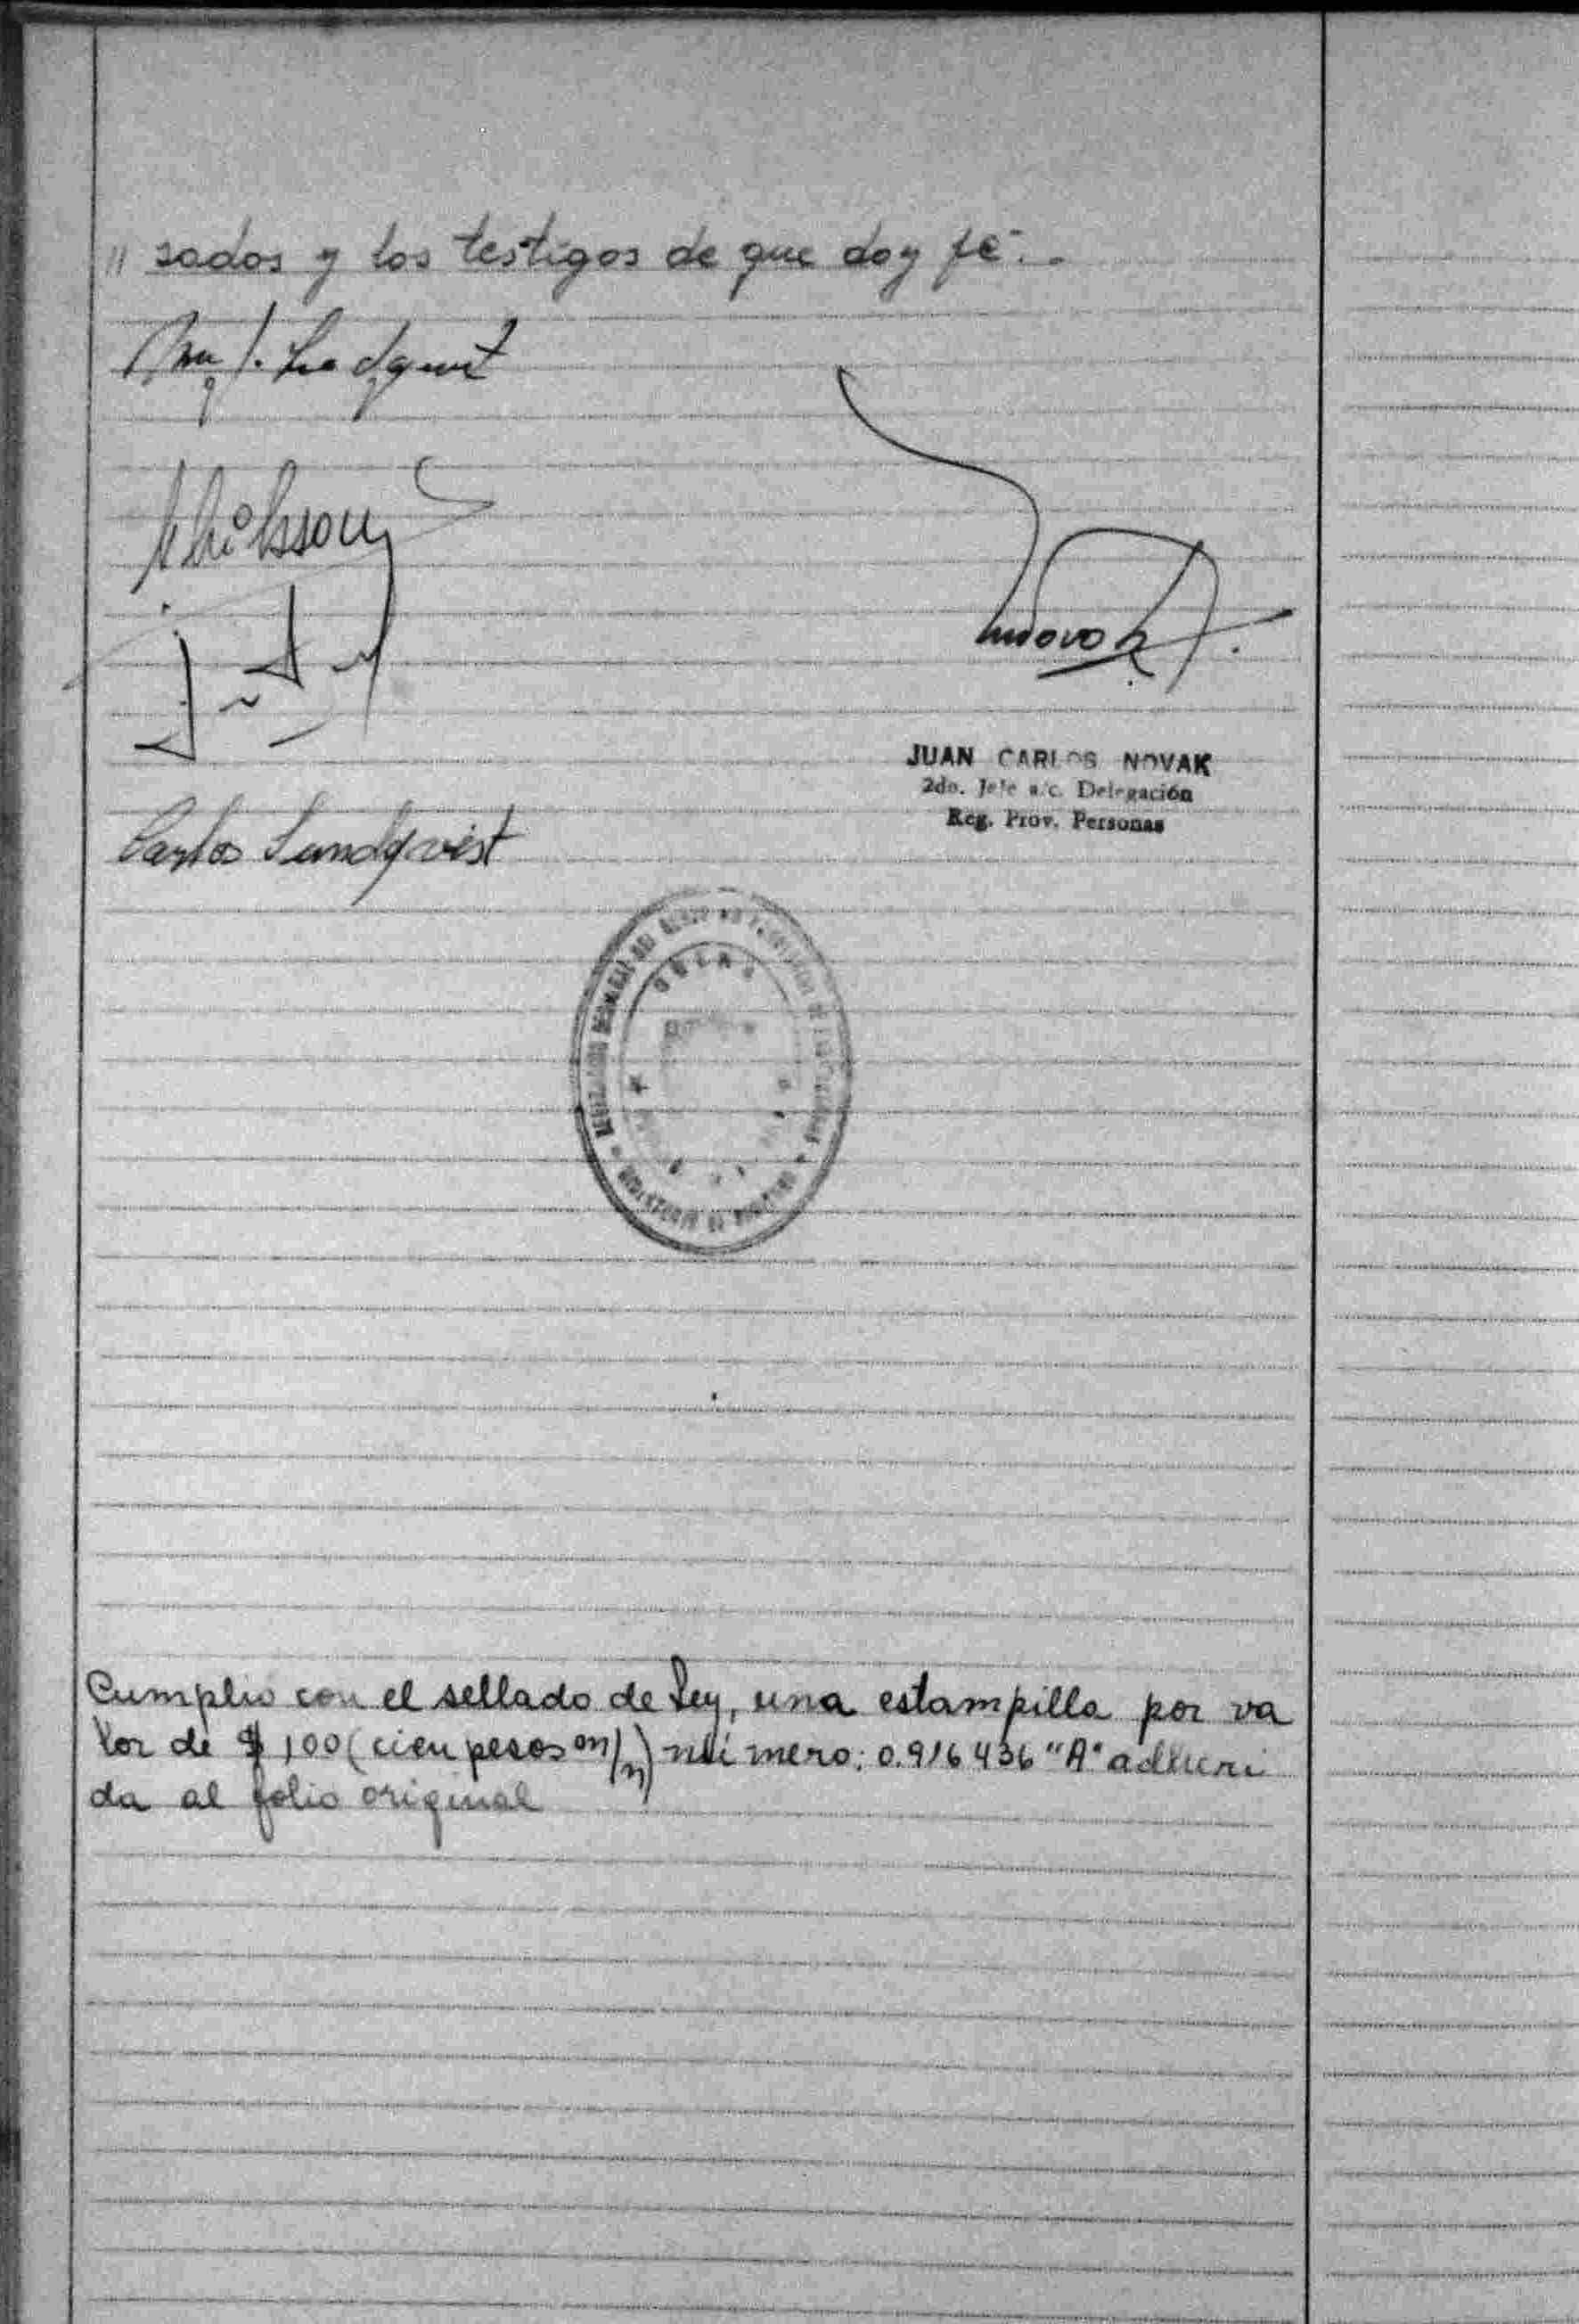 " sados y los testigos de que doy fé.-
Novak
JUAN CARLOS NOVAK
2do. Jefe a/c. Delegación
Reg. Prov. Personas
Carlos Sundqvist
OBERA
Cumplio con el sellado de Ley, una estampilla por va
lor de $ 100 (cien pesos m/n) número: 0.916436 "A" adheri
da al folio original